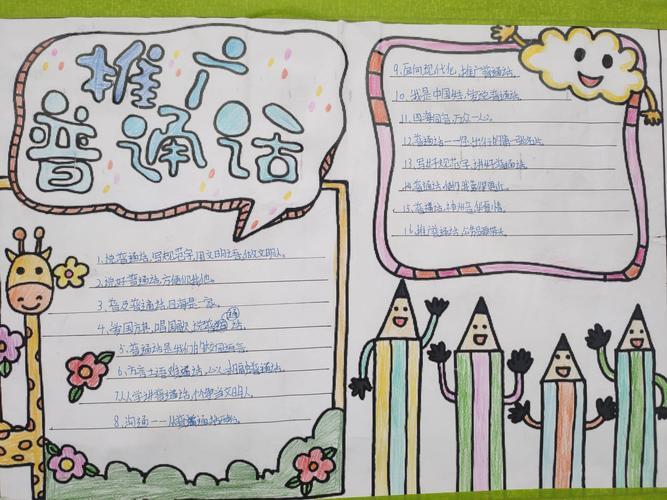 推广
普通话
1.说普通话,写规范字,用文明语,做文明人。
2.说好普通话,方便你我他。
3.普及普通话,四海是一家。
4.爱国旗,唱国歌,说普通话。
5.普通话是我们的校园语言。
6.方言土语难
7.人人学讲普通话,个个争当文明人。
8.沟通——从普通话开始。
9.面向现代化,推广普通话。
10.我是中国娃,爱说普通话。
11.四海同音,万众一心。
12.普通话——你 的第一张名片。
13.写好规范字,讲好普通话。
14.普通话,使你我靠得更近。
15.普通话,神州音,华夏情。
16.推广普通话,公务员要带头。